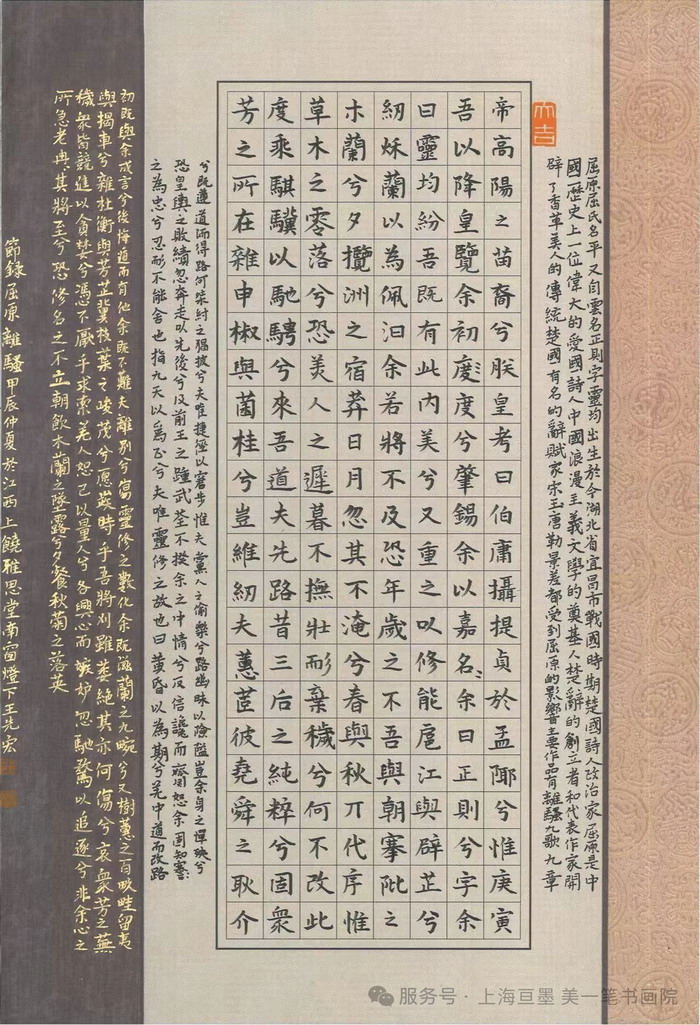 大吉
屈原屈氏名平又自雲名正则字靈均出生於今湖北省宜昌市戰國時期楚國詩人政治家屈原是中
國歷史上一位偉大的愛國詩人中國浪漫主義文學的奠基人楚辭的創立者和代表作家開
辟了香草美人的傳統楚國有名的辭賦家宋玉唐勒景差都受到屈原的影響主要作品有離騷九歌九章
帝高陽之苗裔兮朕皇考曰伯庸攝提貞於孟陬兮惟庚寅
吾以降皇覽余初度度兮肇錫余以嘉名余曰正則兮字余
曰靈均紛吾既有此内美兮又重之以修能扈江與辟芷兮
紉秌蘭以為佩汩余若將不及恐年歲之不吾與朝搴阰之
木蘭兮夕攬洲之宿莽日月忽其不淹兮春與秋丌代序惟
草木之零落兮恐美人之遲暮不撫壯而棄穢兮何不改此
度乘騏驥以馳騁兮來吾道夫先路昔三后之純粹兮固衆
芳之所在雜申椒與菌桂兮豈維紉夫蕙茝彼堯舜之耿介
兮既遵道而得路何桀紂之猖披兮夫唯捷徑以窘步惟夫黨人之偷樂兮路幽昧以險隘豈余身之憚殃兮
恐皇輿之敗績忽奔走以先後兮及前王之踵武荃不揆余之中情兮反信讒而齌怒余固知謇
之為患兮忍而不能舍也指九天以為正兮夫唯靈修之故也曰黄昏以為期兮羌中道而改路
初既與余成言兮後悔遁而有他余既不難夫離別兮傷靈修之數化余既滋蘭之九畹兮又樹蕙之百畝畦留夷
與揭車兮雜杜衡與芳芷冀枝葉之峻茂兮愿竢時乎吾將刈雖萎絶其亦何傷兮哀衆芳之蕪
穢衆皆競進以貪婪兮憑不厭乎求索羌内恕己以量人兮各興心而嫉妒忽馳騖以追逐兮非余心之
所急老冉其將至兮恐修名之不立朝飲木蘭之墜露兮夕餐秋菊之落英
節錄屈原離騷甲辰仲夏於江西上饒雅思堂南窗燈下王先宏
服务号·上海亘墨 美一笔书画院